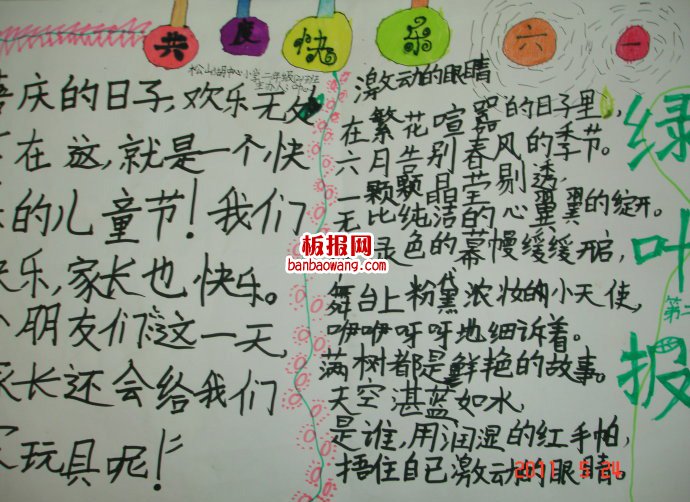 共度快乐六一
松山湖中心小学二年级
喜庆的日子,欢乐无处
在这,就是一个快
的儿童节!我们
快乐,家长也快乐。
朋友们这一天,
家长还会给我们
玩具呢!
激动的眼睛
在繁花喧嚣的日子里,
六月告别春风的季节。
一颗颗晶莹剔透,
无比纯洁的心翼翼的绽开。
绿色的幕幔缓缓开启,
舞台上粉黛浓妆的小天使,
咿咿呀呀地细诉着。
满树都是鲜艳的故事。
天空湛蓝如水,
是谁,用润湿的红手帕,
捂住自己激动的眼睛。
绿叶报
第二
板报网
banbaowang.com
2011 5 24